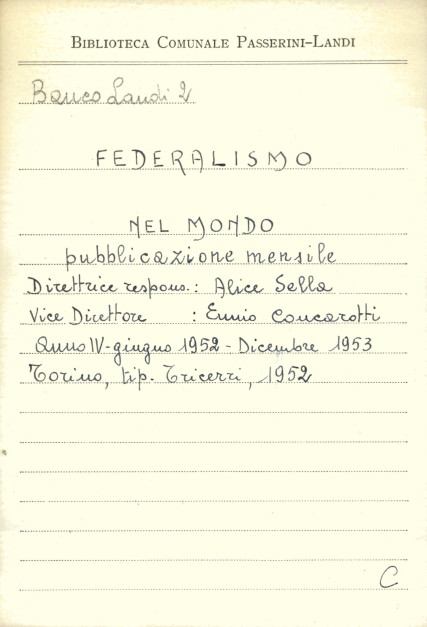 BIBLIOTECA COMUNALE PASSERINI-LANDI
Banco Landi 2
FEDERALISMO
NEL MONDO
pubblicazione mensile
Direttrice respons.: Alice Sella
Vice Direttore : Ennio Concarotti
Anno IV - giugno 1952 - Dicembre 1953
Torino, tip. Tricerri, 1952
C